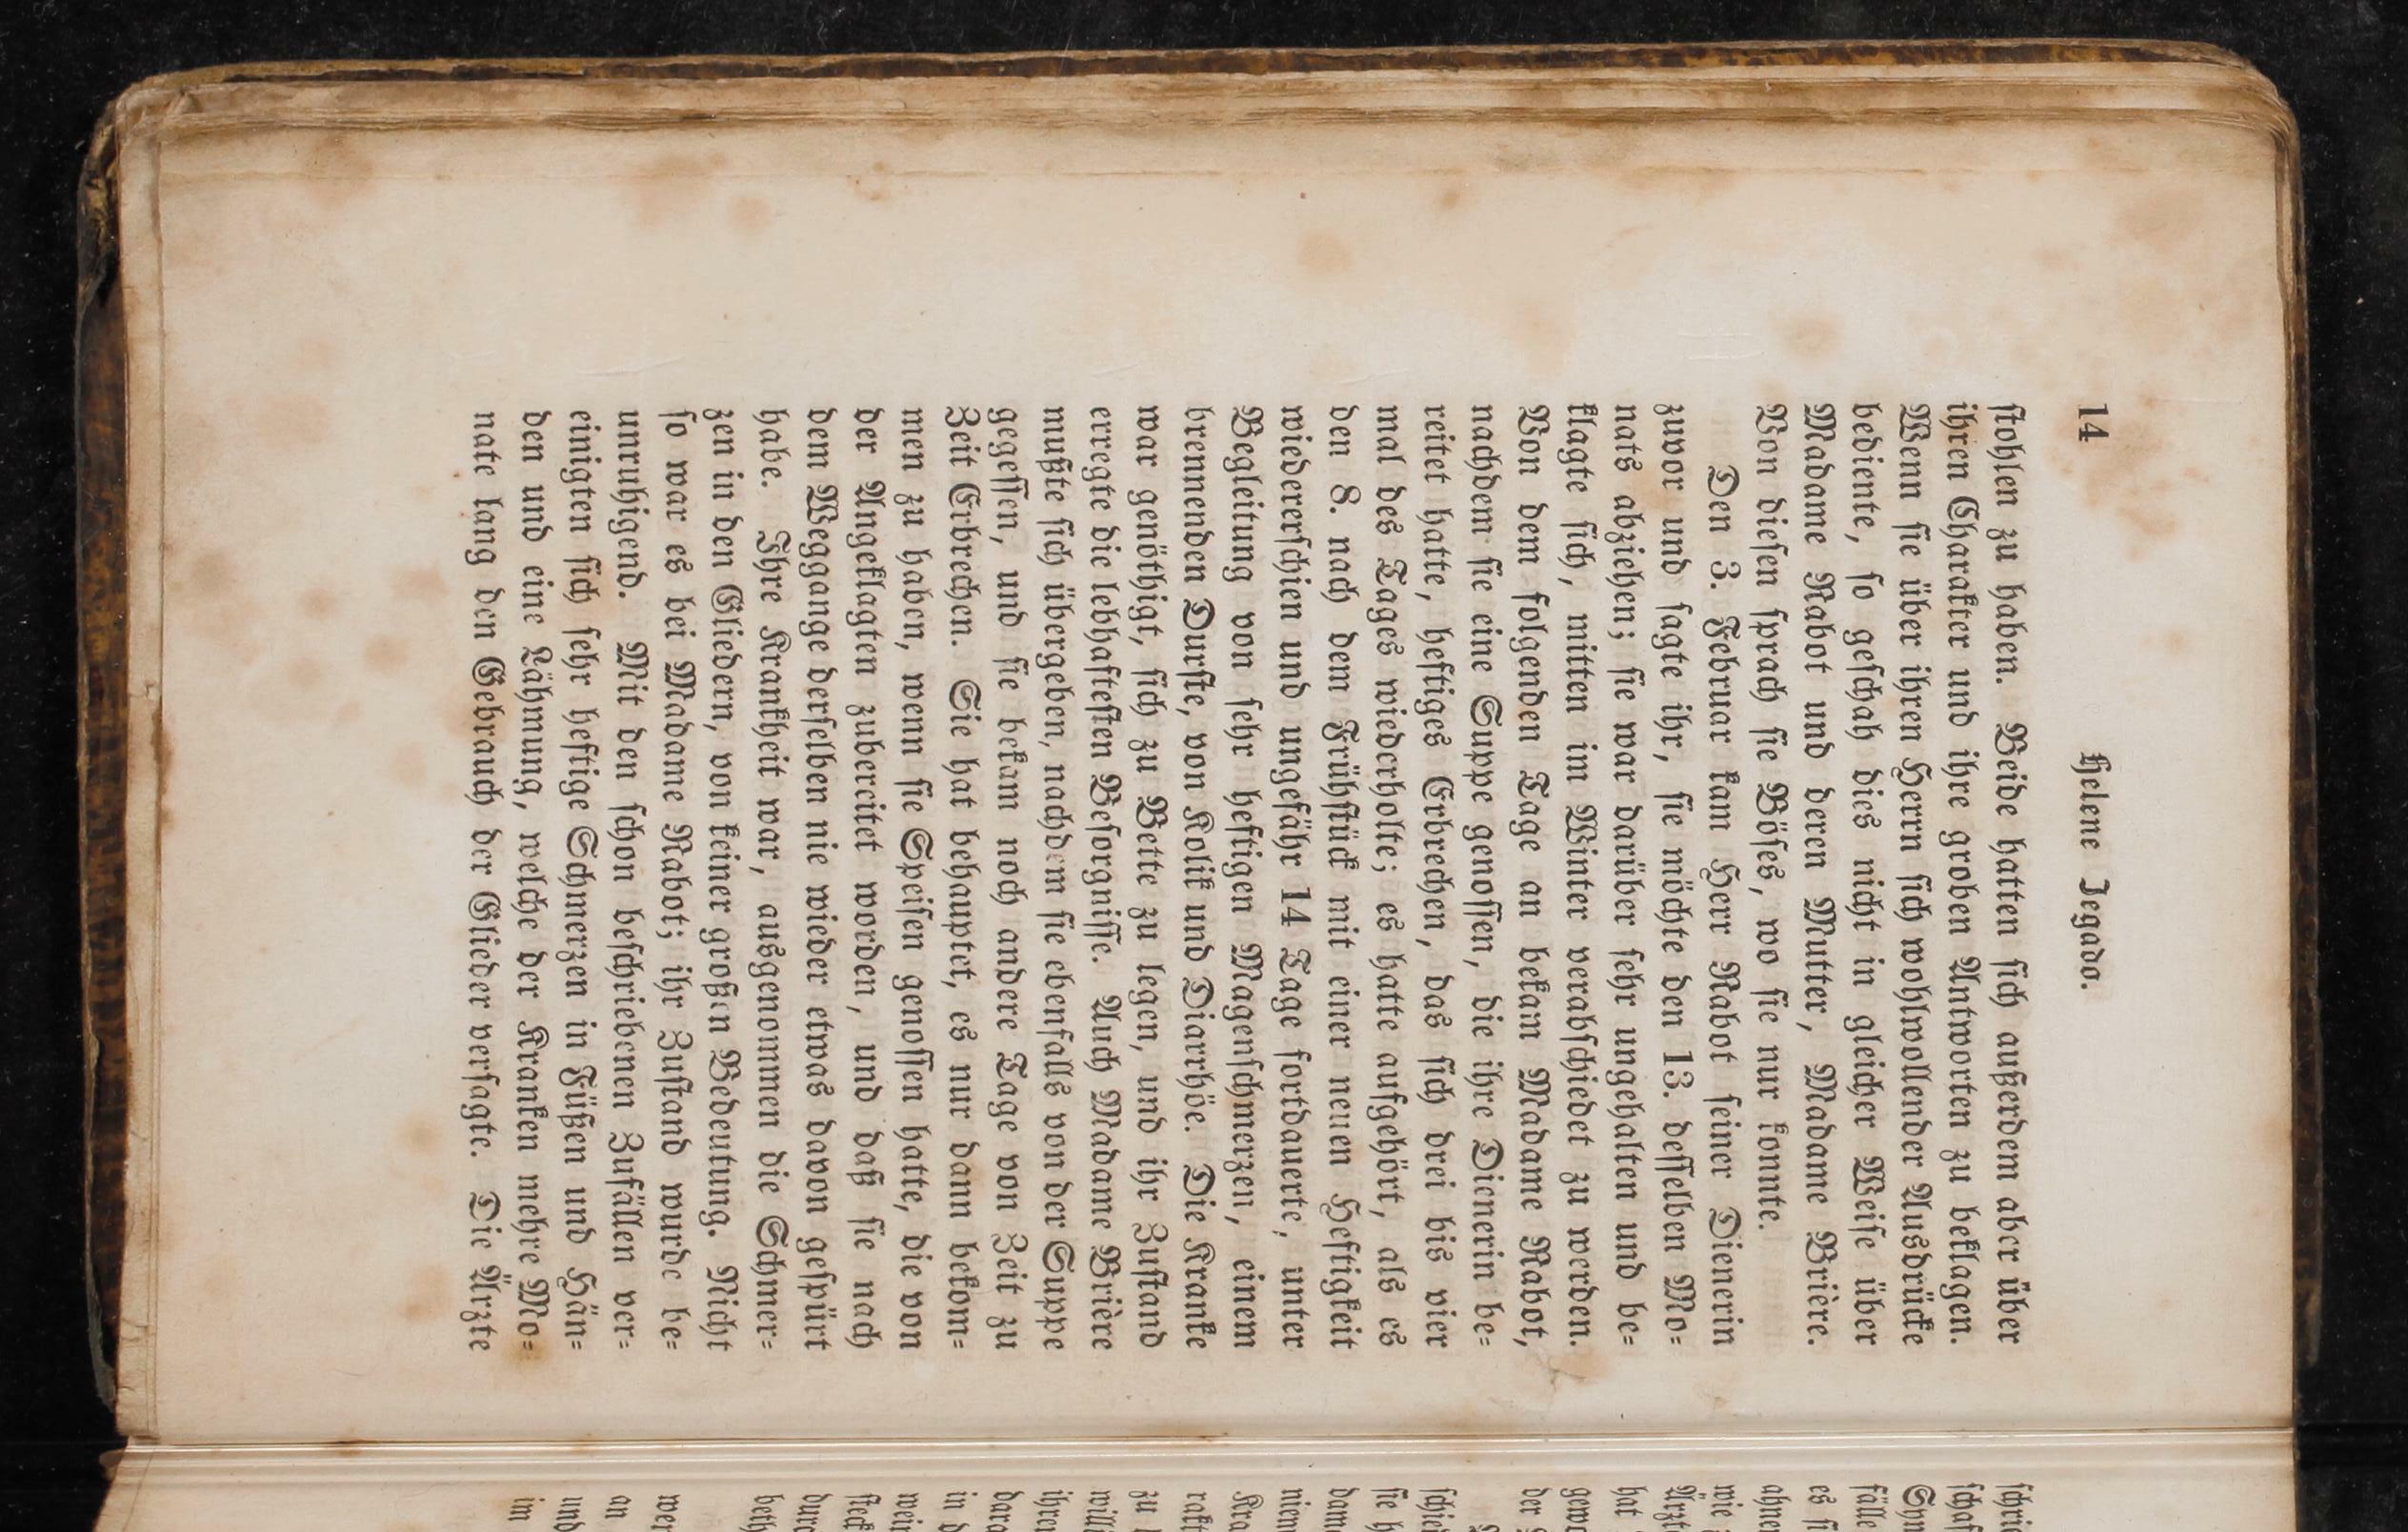 14 Helene Jegado.
stohlen zu haben. Beide hatten sich außerdem aber über
ihren Charakter und ihre groben Antworten zu beklagen.
Wenn sie über ihren Herrn sich wohlwollender Ausdrücke
bediente, so geschah dies nicht in gleicher Weise über
Madame Rabot und deren Mutter, Madame Brière.
Von diesen sprach sie Böses, wo sie nur konnte.
Den 3. Februar kam Herr Rabot seiner Dienerin
zuvor und sagte ihr, sie möchte den 13. desselben Mo-
nats abziehen; sie war darüber sehr ungehalten und be-
klagte sich, mitten im Winter verabschiedet zu werden.
Von dem folgenden Tage an bekam Madame Rabot,
nachdem sie eine Suppe genossen, die ihre Dienerin be-
reitet hatte, heftiges Erbrechen, das sich drei bis vier
mal des Tages wiederholte; es hatte aufgehört, als es
den 8. nach dem Frühstück mit einer neuen Heftigkeit
wiedererschien und ungefähr 14 Tage fortdauerte, unter
Begleitung von sehr heftigen Magenschmerzen, einem
brennenden Durste, von Kolik und Diarrhöe. Die Kranke
war genöthigt, sich zu Bette zu legen, und ihr Zustand
erregte die lebhaftesten Besorgnisse. Auch Madame Brière
mußte sich übergeben, nachdem sie ebenfalls von der Suppe
gegessen, und sie bekam noch andere Tage von Zeit zu
Zeit Erbrechen. Sie hat behauptet, es nur dann bekom-
men zu haben, wenn sie Speisen genossen hatte, die von
der Angeklagten zubereitet worden, und daß sie nach
dem Weggange derselben nie wieder etwas davon gespürt
habe. Ihre Krankheit war, ausgenommen die Schmer-
zen in den Gliedern, von keiner großen Bedeutung. Nicht
so war es bei Madame Rabot; ihr Zustand wurde be-
unruhigend. Mit den schon beschriebenen Zufällen ver-
einigten sich sehr heftige Schmerzen in Füßen und Hän-
den und eine Lähmung, welche der Kranken mehre Mo-
nate lang den Gebrauch der Glieder versagte. Die Ärzte